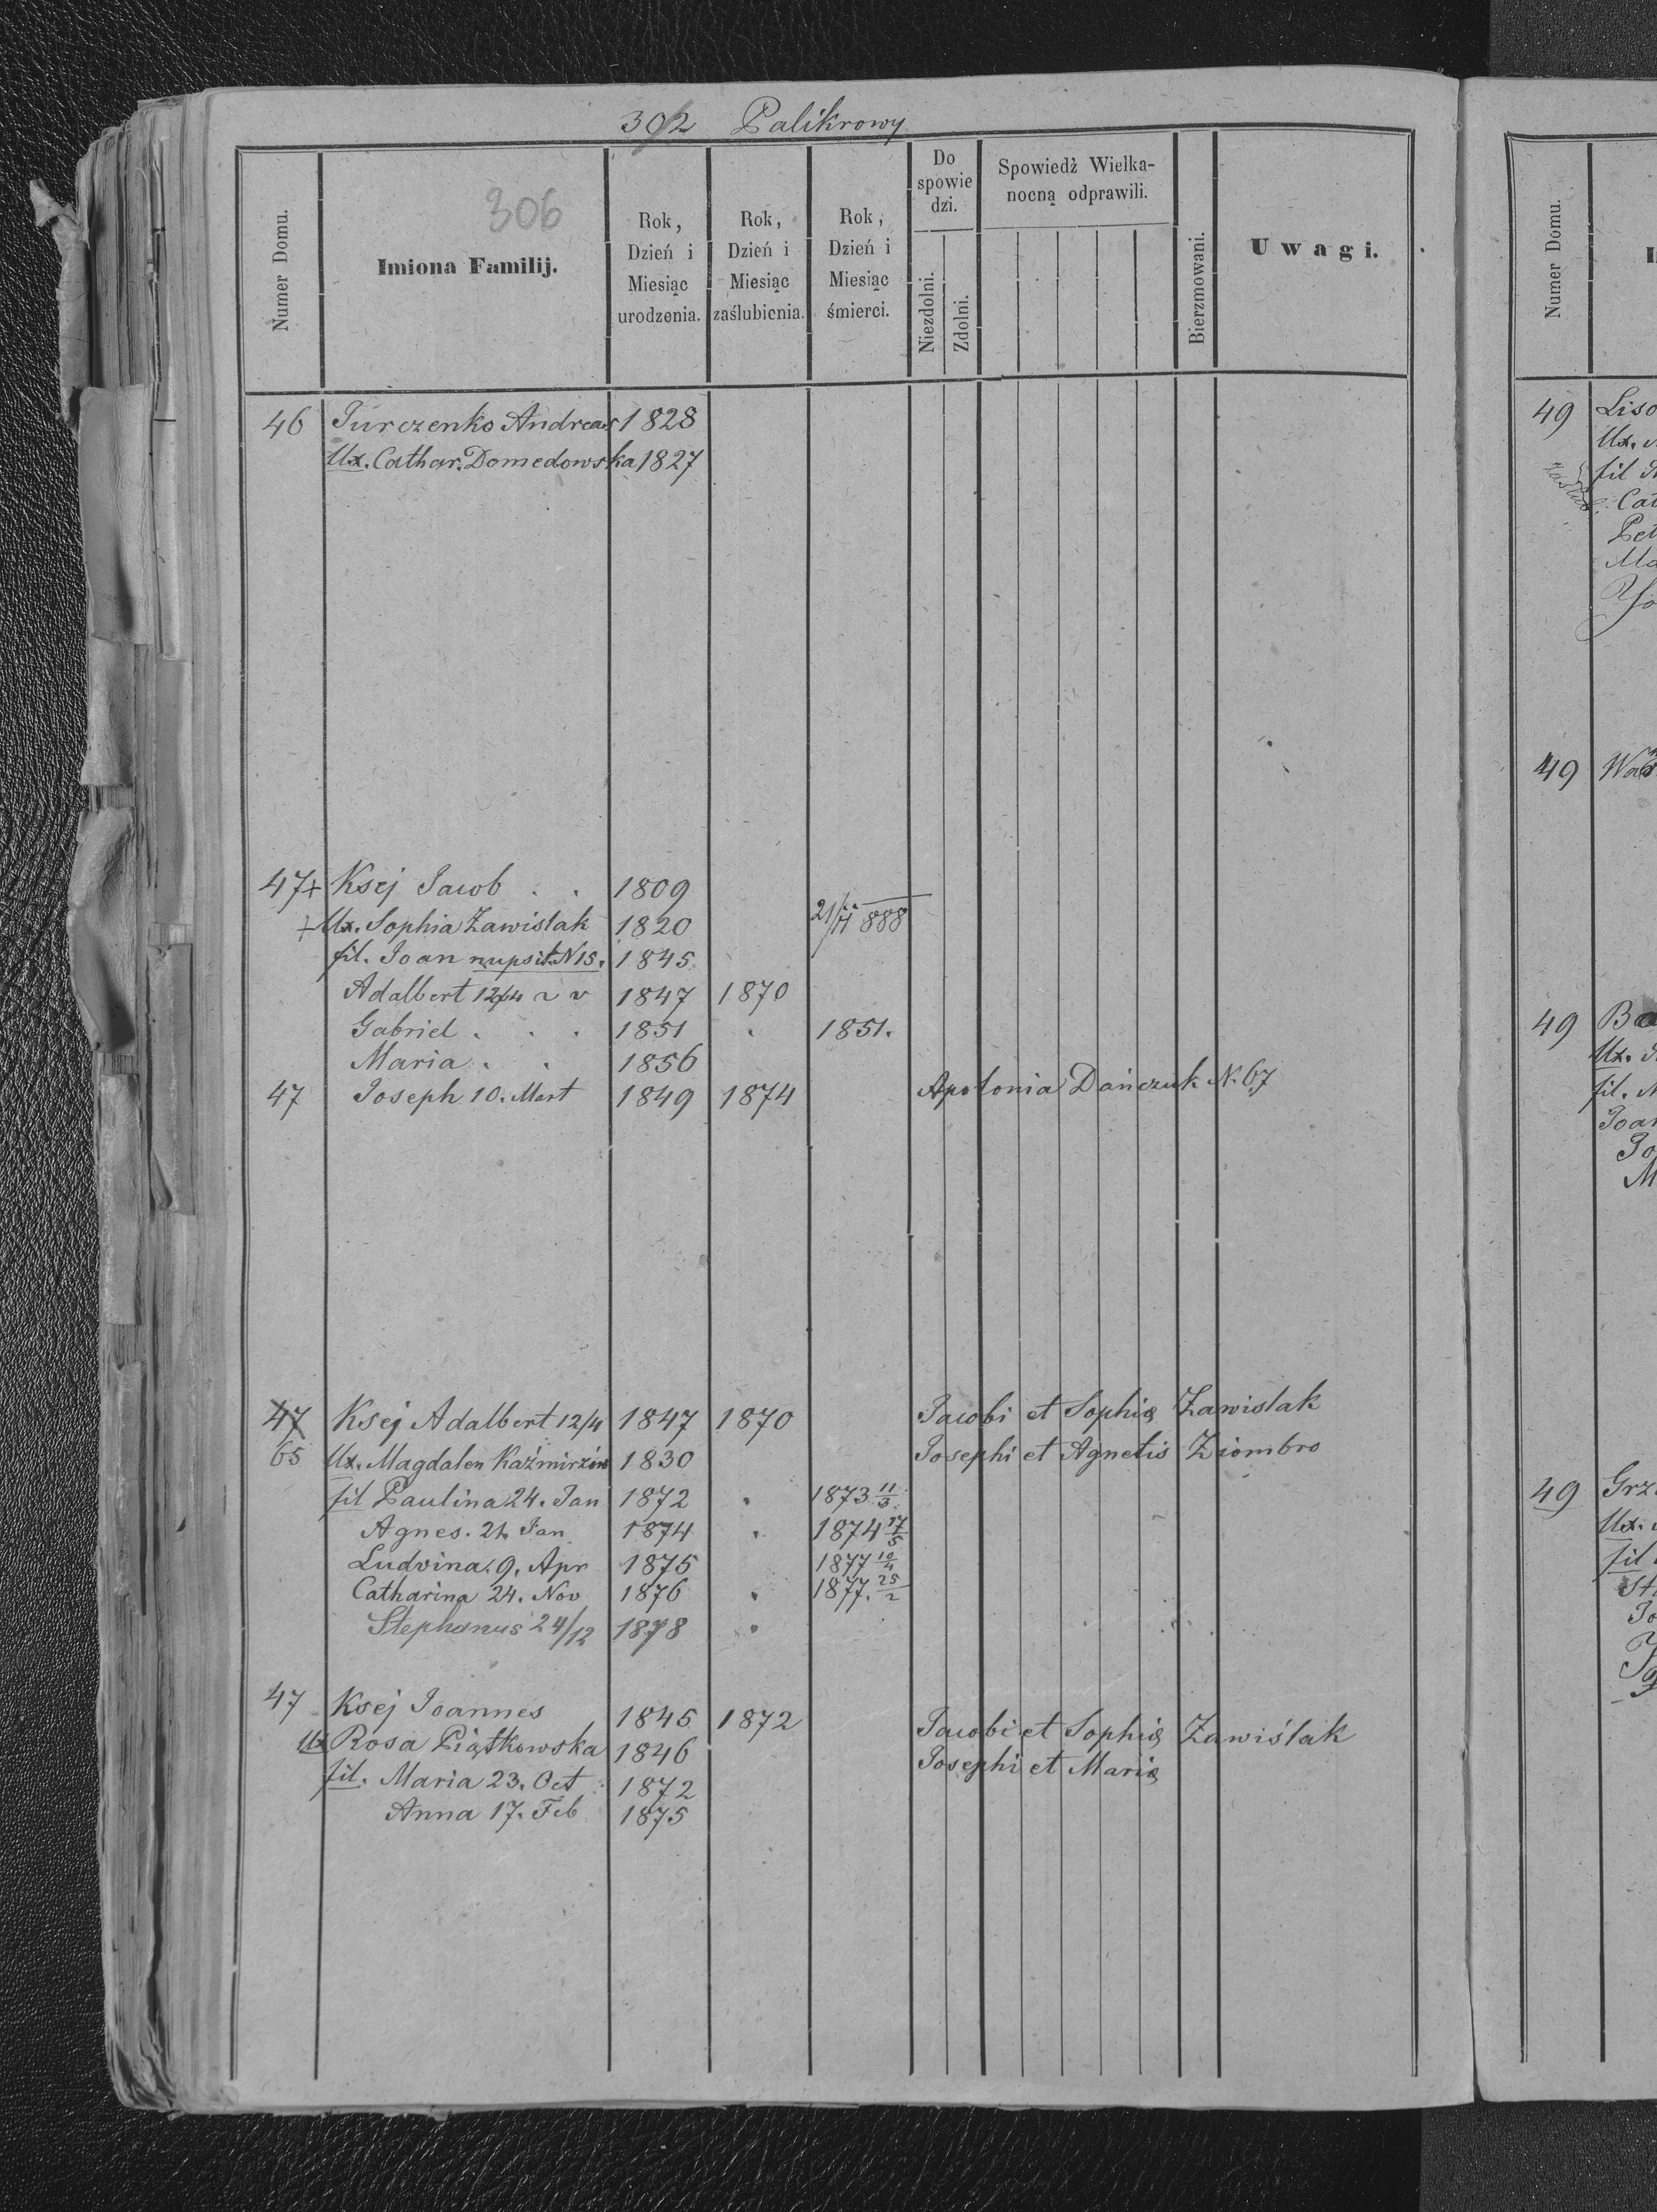 302 Palikrowy
306
Numer Domu.
Imiona Familij.
Rok, Dzień i Miesiąc urodzenia.
Rok, Dzień i Miesiąc zaślubienia.
Rok, Dzień i Miesiąc śmierci.
Do spowiedzi.
Niezdolni.
Zdolni.
Spowiedź Wielkanocną odprawili.
Bierzmowani.
Uwagi.
46 Jurczenko Andreas 1828
Ux. Cathar. Domedowska 1827
47+ Ksej Jacob . . 1809
+Ux. Sophia Zawislak 1820 21/II 888
fil. Joan nupsit N 15. 1845
Adalbert 12/4 1847 1870
Gabriel . . . 1851 . 1851.
Maria . . 1856
47 Joseph 10. Mart 1849 1874 Apolonia Dańczuk N. 67
47 Ksej Adalbert 12/4 1847 1870 Jacobi et Sophia Zawislak
65 Ux. Magdalen Kaźmirzów 1830 Josephi et Agnetis Ziombro
fil Paulina 24. Jan 1872 . 1873 11/3
Agnes. 21 Jan 1874 . 1874 17/5
Ludvina. 9. Apr 1875 1877 10/4
Catharina 24. Nov 1876 . 1877. 25/2
Stephanus 24/12 1878 .
47 Ksej Joannes 1845 1872 Jacobi et Sophia Zawiślak
Ux Rosa Piątkowska 1846 Josephi et Maria
fil. Maria 23. Oct 1872
Anna 17. Feb 1875
Numer Domu.
49
Ux.
fil
49
49
Ux.
fil.
49
Ux.
fil